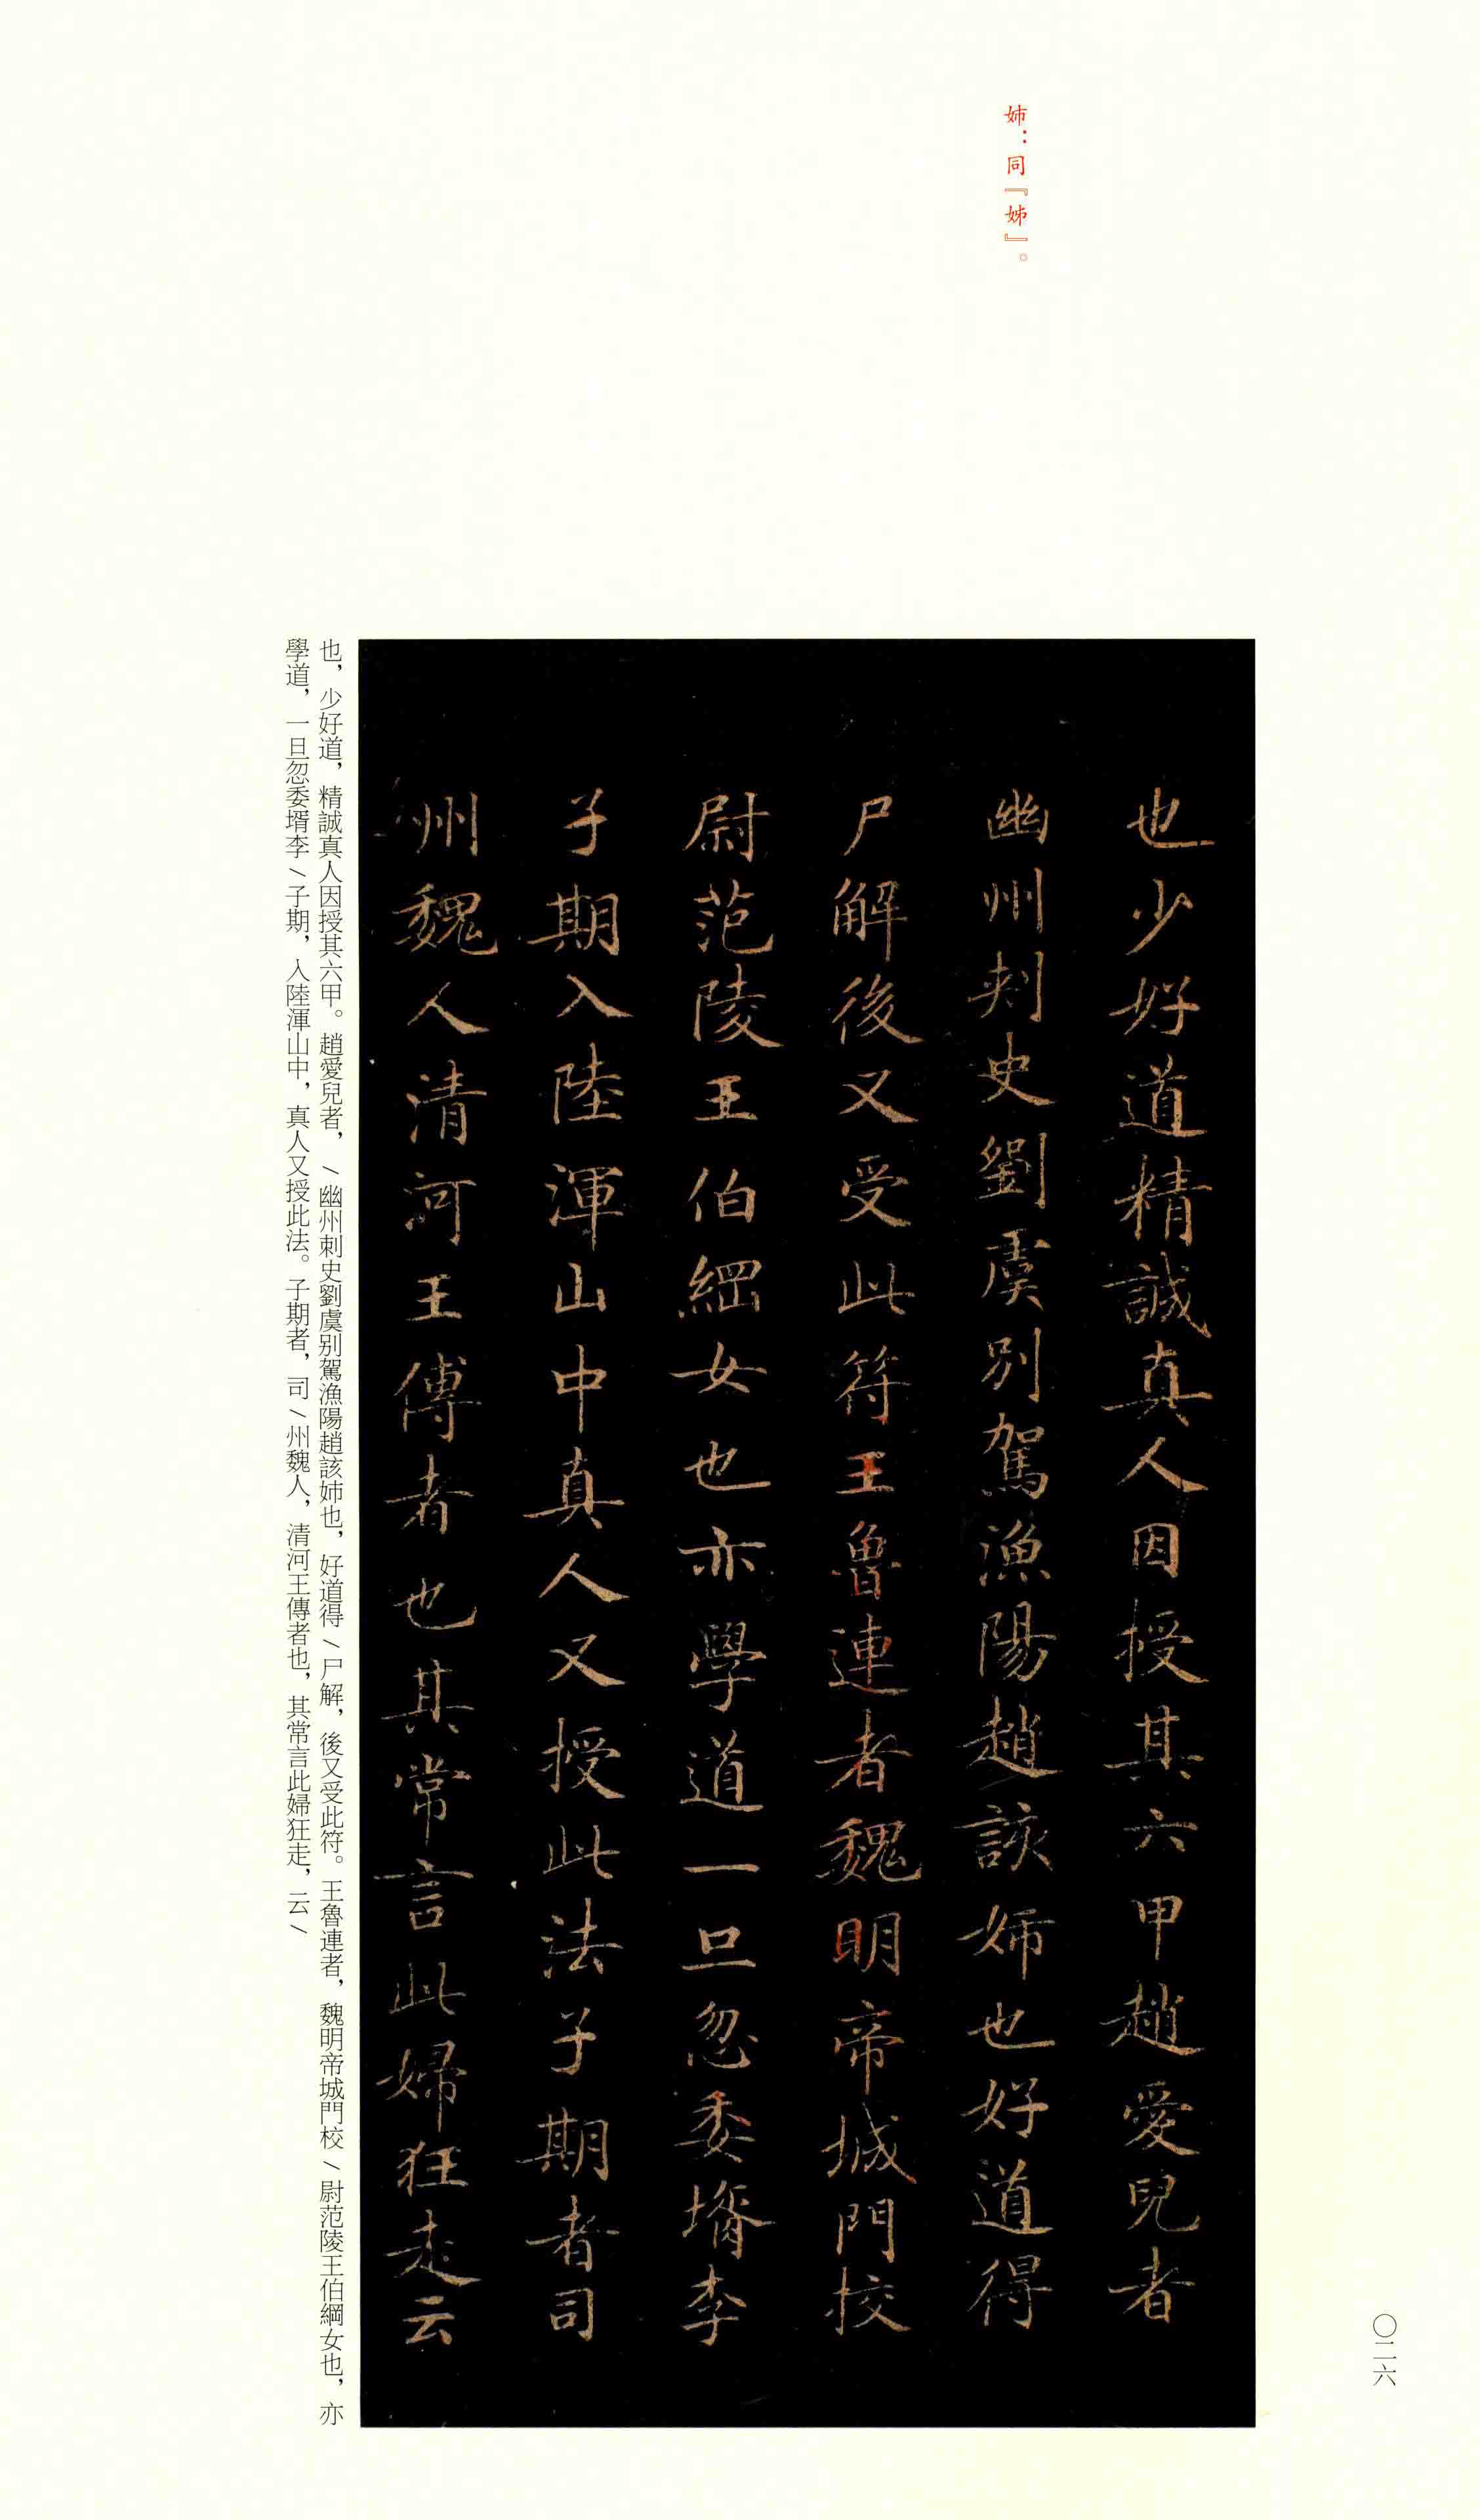 姉：同『姊』。
也少好道精誠真人因授其六甲趙愛兒者
幽州刾史劉虞別駕漁陽趙該姉也好道得
尸解後又受此符王魯連者魏明帝城門校
尉范陵王伯綱女也亦學道一旦忽委壻李
子期入陸渾山中真人又授此法子期者司
州魏人清河王傅者也其常言此婦狂走云
也，少好道，精誠真人因授其六甲。趙愛兒者，/幽州刺史劉虞别駕漁陽趙該姉也，好道得/尸解，後又受此符。王魯連者，魏明帝城門校/尉范陵王伯綱女也，亦
學道，一旦忽委壻李/子期，入陸渾山中，真人又授此法。子期者，司/州魏人，清河王傳者也，其常言此婦狂走，云/
〇二六